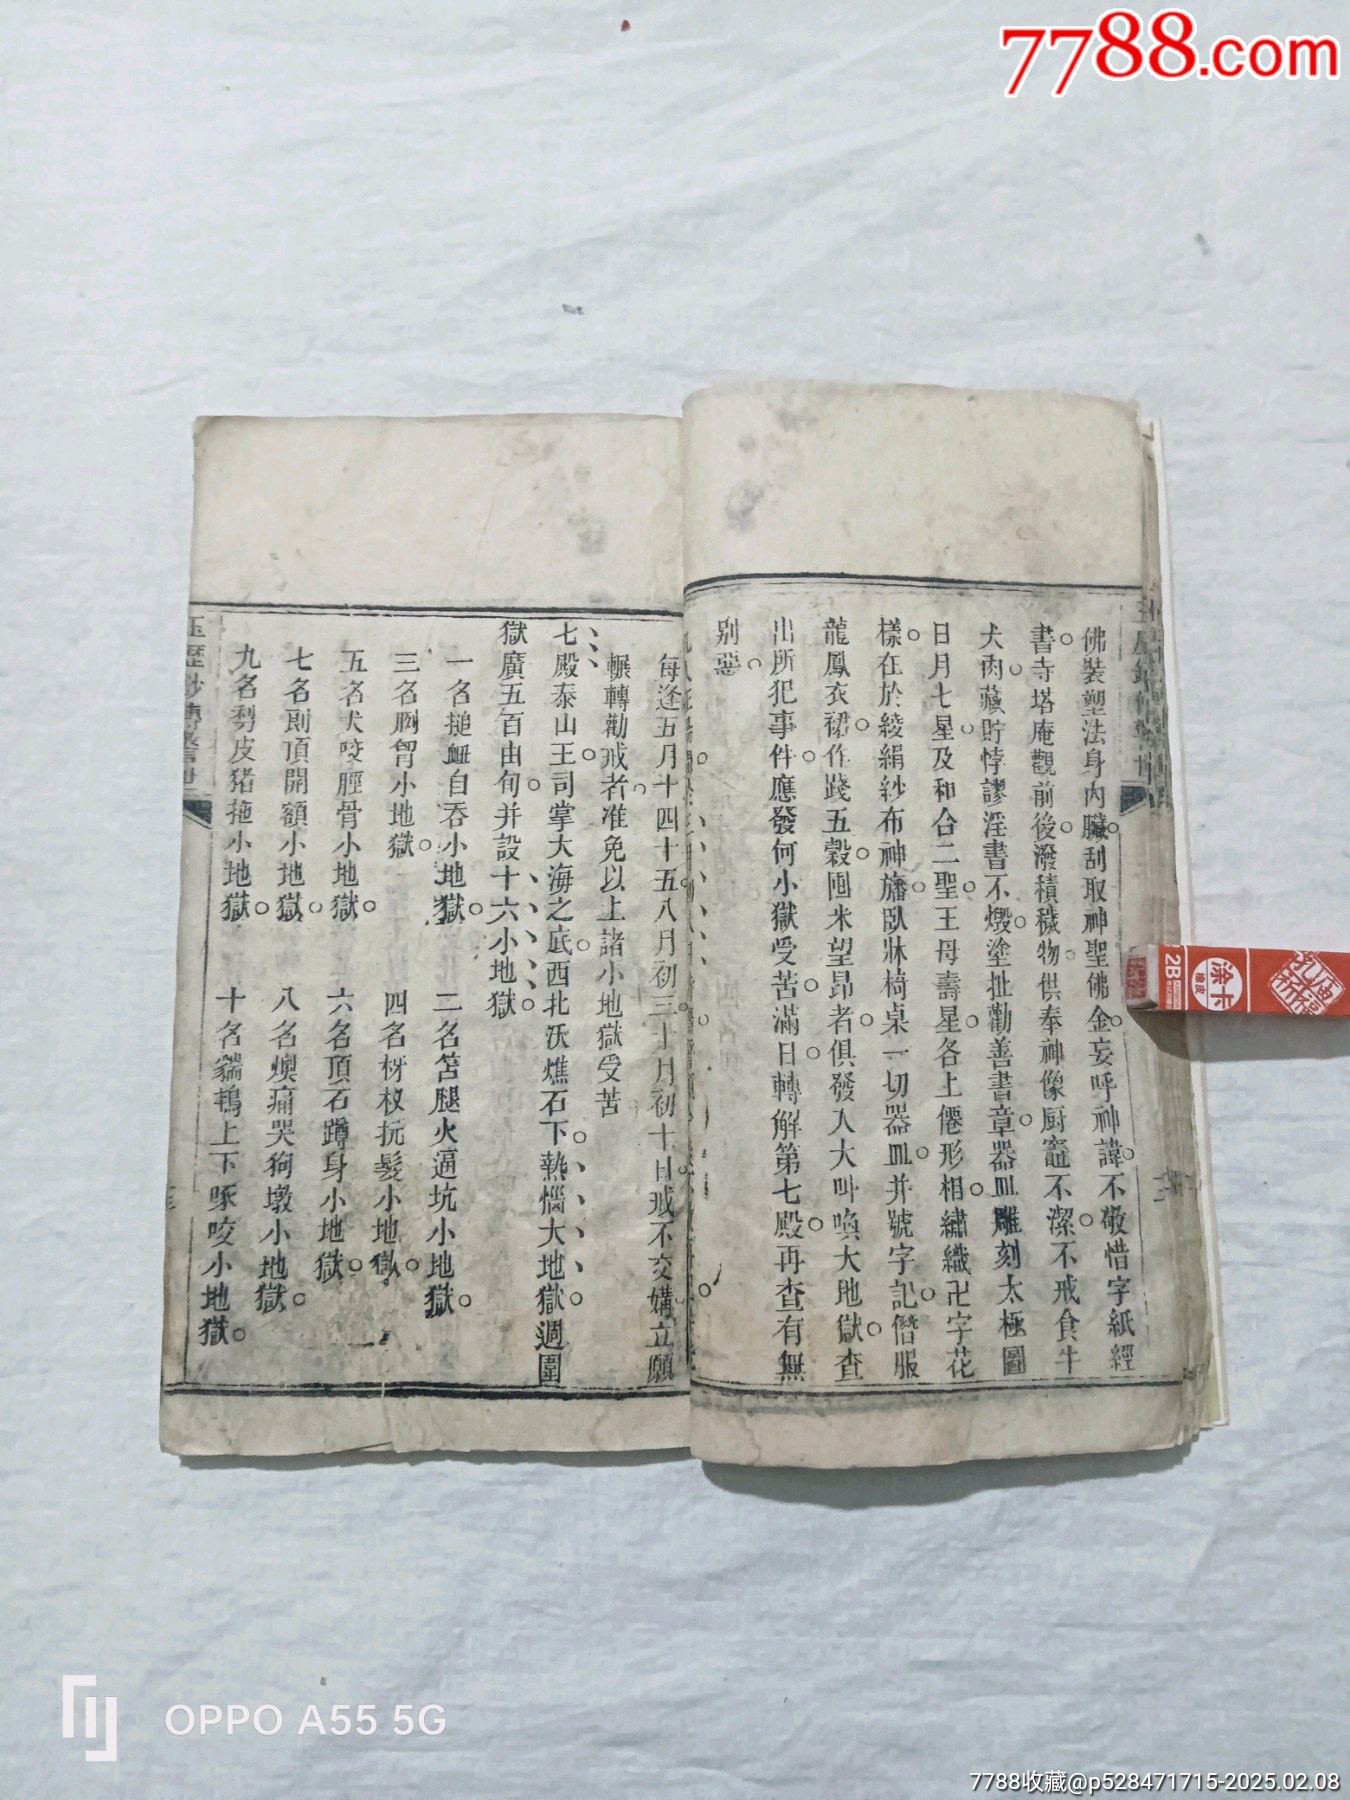 7788.com
佛裝塑法身內臟刮取神聖佛金妄呼神諱不敬惜字紙經
書寺塔庵觀前後潑積穢物俱奉神像厨竈不潔不戒食牛
犬肉藏貯悖謬淫書不燬塗扯勸善書章器皿雕刻太極圖
日月七星及和合二聖王母壽星各上僊形相繡織卍字花
樣在於綾絹紗布神旛臥牀椅桌一切器皿并號字記僭服
龍鳳衣裙作踐五穀囤米望昂者俱發入大叫喚大地獄查
出所犯事件應發何小獄受苦滿日轉解第七殿再查有無
別惡
每逢五月十四十五八月初三十月初十日戒不交媾立願
輾轉勸戒者准免以上諸小地獄受苦
七殿泰山王司掌大海之底西北沃燋石下熱惱大地獄週圍
獄廣五百由旬并設十六小地獄
一名搥衄自吞小地獄 二名笞腿火逼坑小地獄
三名胸胷小地獄 四名杈抗髮小地獄
五名犬咬脛骨小地獄 六名頂石蹲身小地獄
七名則頂開額小地獄 八名燠痛哭狗墩小地獄
九名剺皮猪拖小地獄 十名上下啄咬小地獄
玉歷鈔傳警世
2B
涂卡
橡皮
OPPO A55 5G
7788收藏@p528471715-2025.02.08